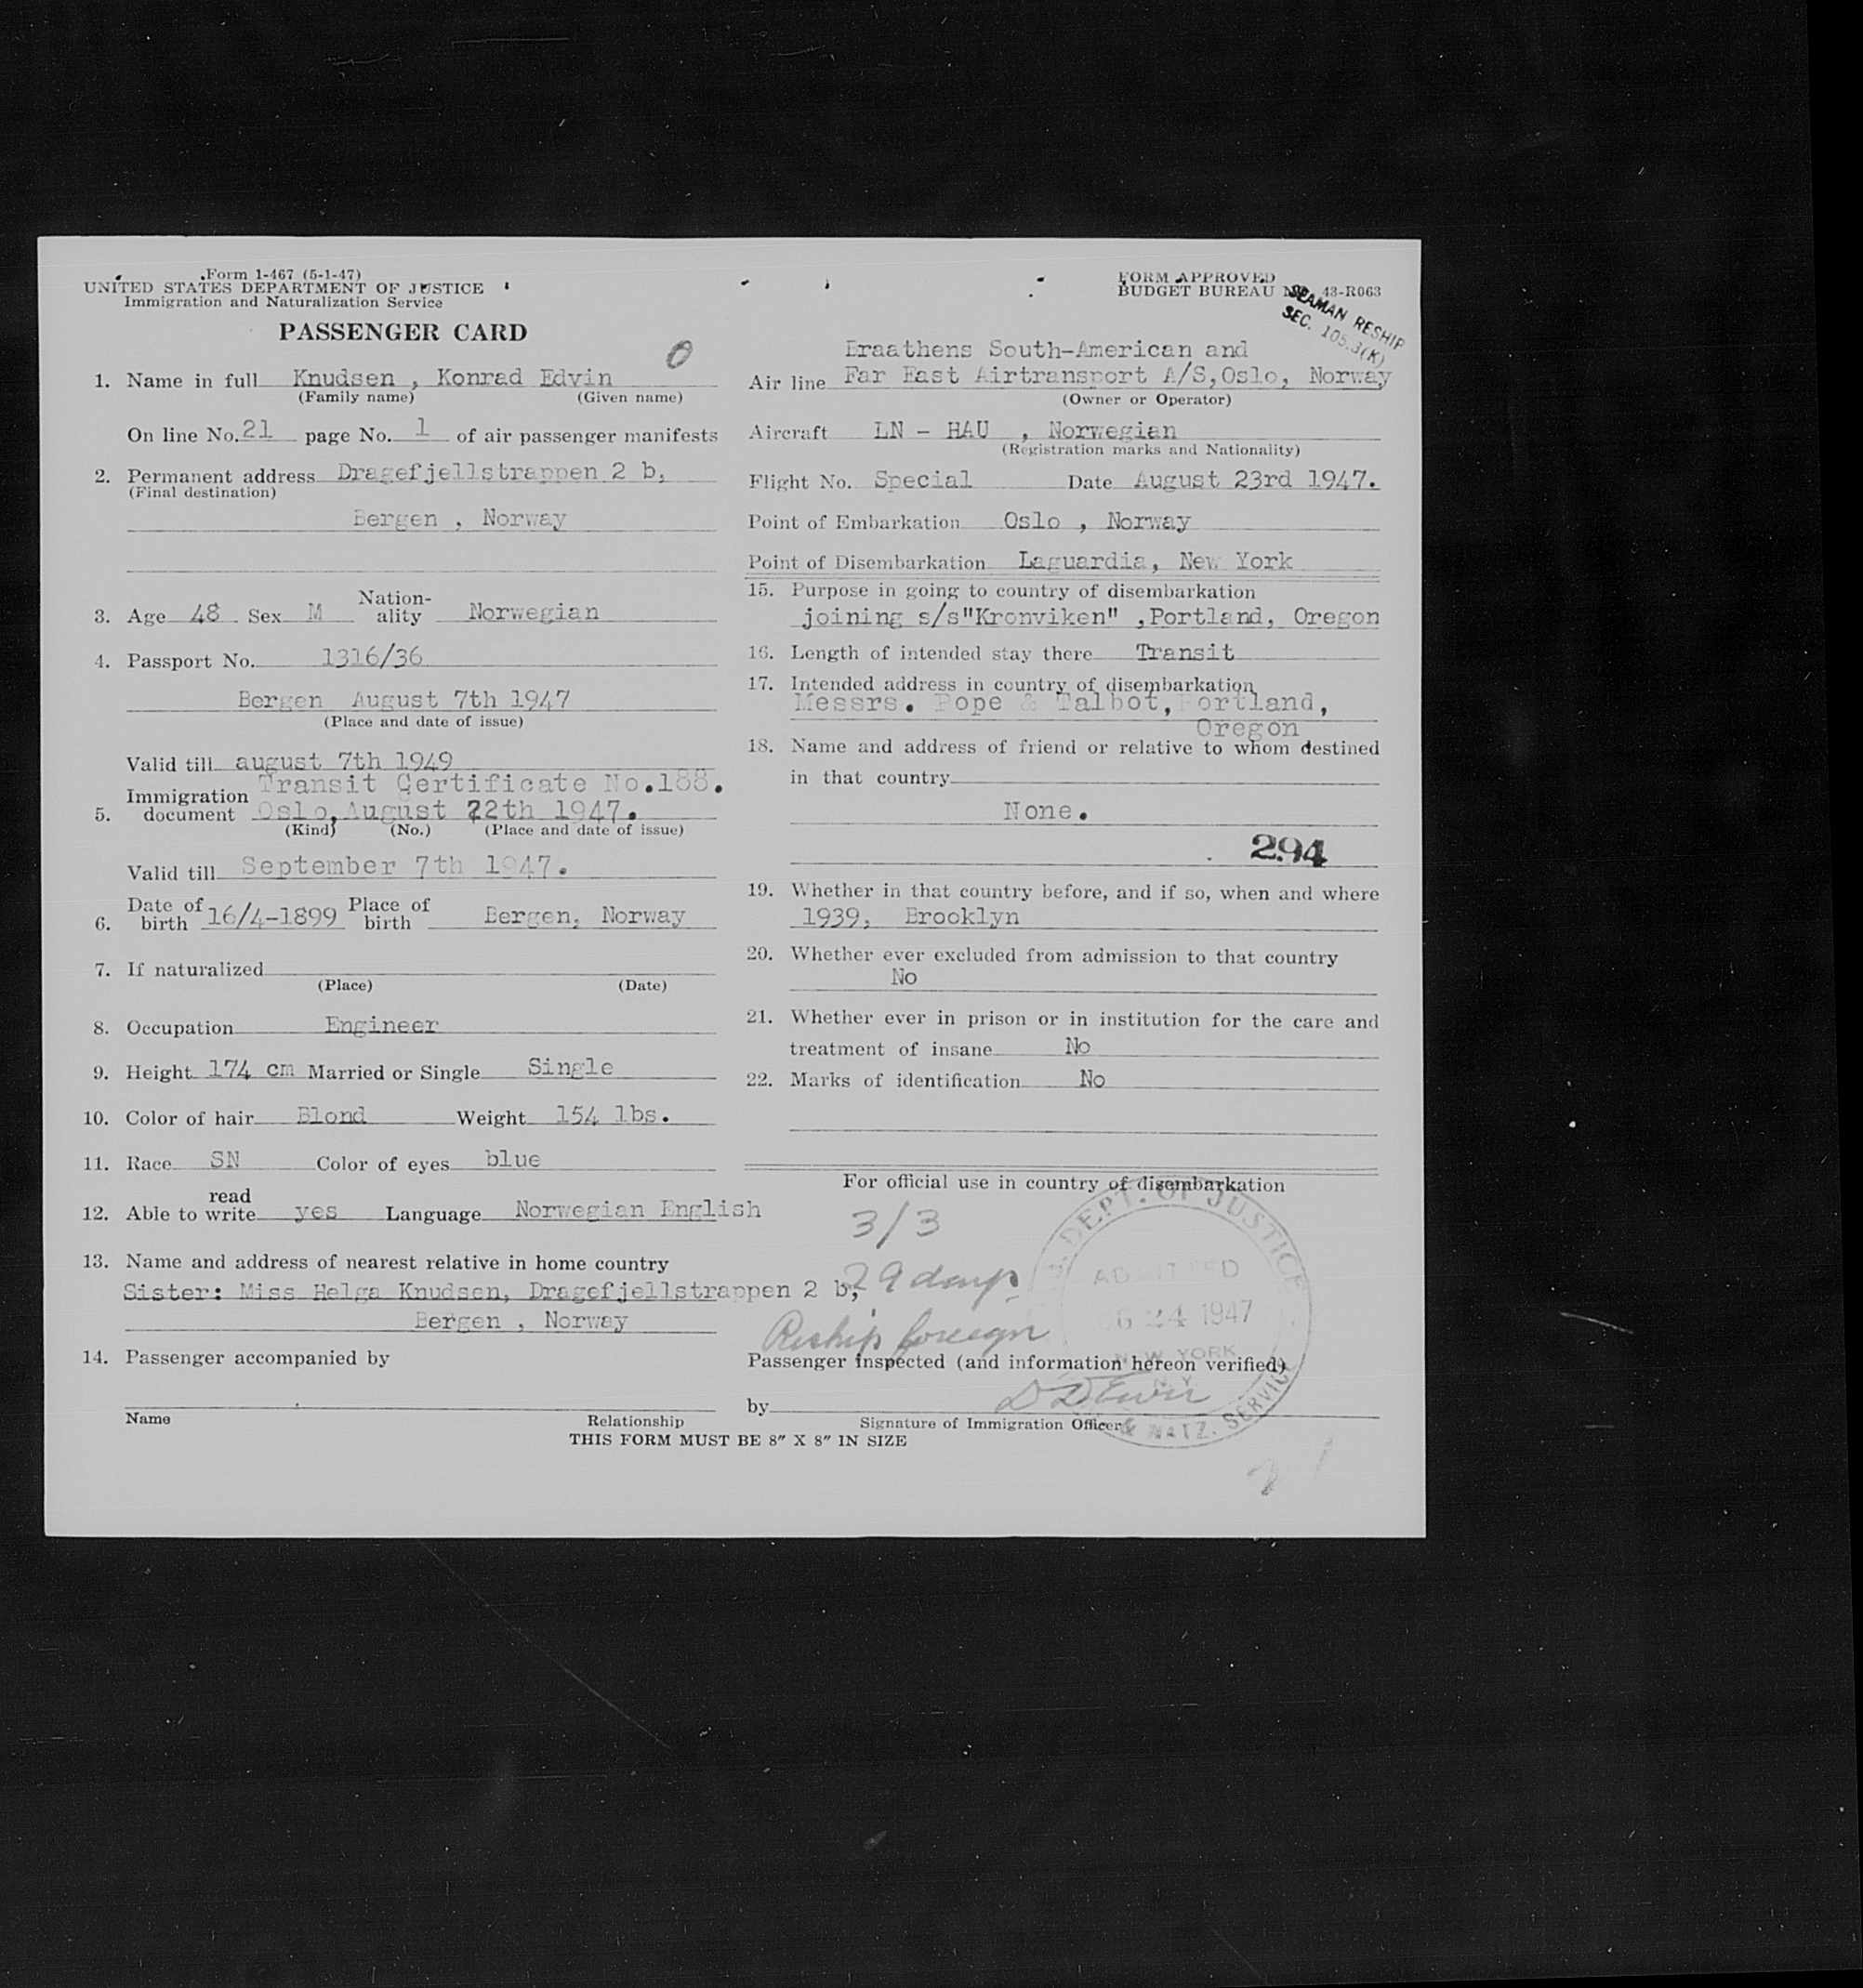 Form 1-467 (5-1-47)
UNITED STATES DEPARTMENT OF JUSTICE
Immigration and Naturalization Service
PASSENGER CARD
1. Name in full Knudsen , Konrad Edvin
(Family name) (Given name)
On line No. 21 page No. 1 of air passenger manifests
2. Permanent address Dragefjellstrappen 2 b,
(Final destination)
Bergen , Norway
3. Age 48 Sex M Nation-ality Norwegian
4. Passport No. 1316/36
Bergen August 7th 1947
(Place and date of issue)
Valid till august 7th 1949
Transit Certificate No.188.
5. Immigration document Oslo, August 22th 1947.
(Kind) (No.) (Place and date of issue)
Valid till September 7th 1947.
6. Date of birth 16/4-1899 Place of birth Bergen, Norway
7. If naturalized
(Place) (Date)
8. Occupation Engineer
9. Height 174 cm Married or Single Single
10. Color of hair Blond Weight 154 lbs.
11. Race SN Color of eyes blue
12. Able to read write yes Language Norwegian English
13. Name and address of nearest relative in home country
Sister: Miss Helga Knudsen, Dragefjellstrappen 2 b,
Bergen , Norway
14. Passenger accompanied by
Name Relationship
FORM APPROVED
BUDGET BUREAU 43-R063
SEAMAN RESHIP
SEC. 105.3(K)
Braathens South-American and
Air line Far East Airtransport A/S, Oslo, Norway
(Owner or Operator)
Aircraft LN - HAU , Norwegian
(Registration marks and Nationality)
Flight No. Special Date August 23rd 1947.
Point of Embarkation Oslo , Norway
Point of Disembarkation Laguardia, New York
15. Purpose in going to country of disembarkation
joining s/s"Kronviken" ,Portland, Oregon
16. Length of intended stay there Transit
17. Intended address in country of disembarkation
Messrs. Pope & Talbot, Portland,
Oregon
18. Name and address of friend or relative to whom destined
in that country
None.
294
19. Whether in that country before, and if so, when and where
1939, Brooklyn
20. Whether ever excluded from admission to that country
No
21. Whether ever in prison or in institution for the care and
treatment of insane No
22. Marks of identification No
For official use in country of disembarkation
3/3
29 days
Reship foreign
DEPT. OF JUSTICE
ADMITTED
24 1947
NEW YORK
N.Y.
& NATZ. SERVICE
Passenger inspected (and information hereon verified)
by
Signature of Immigration Officer
THIS FORM MUST BE 8" X 8" IN SIZE